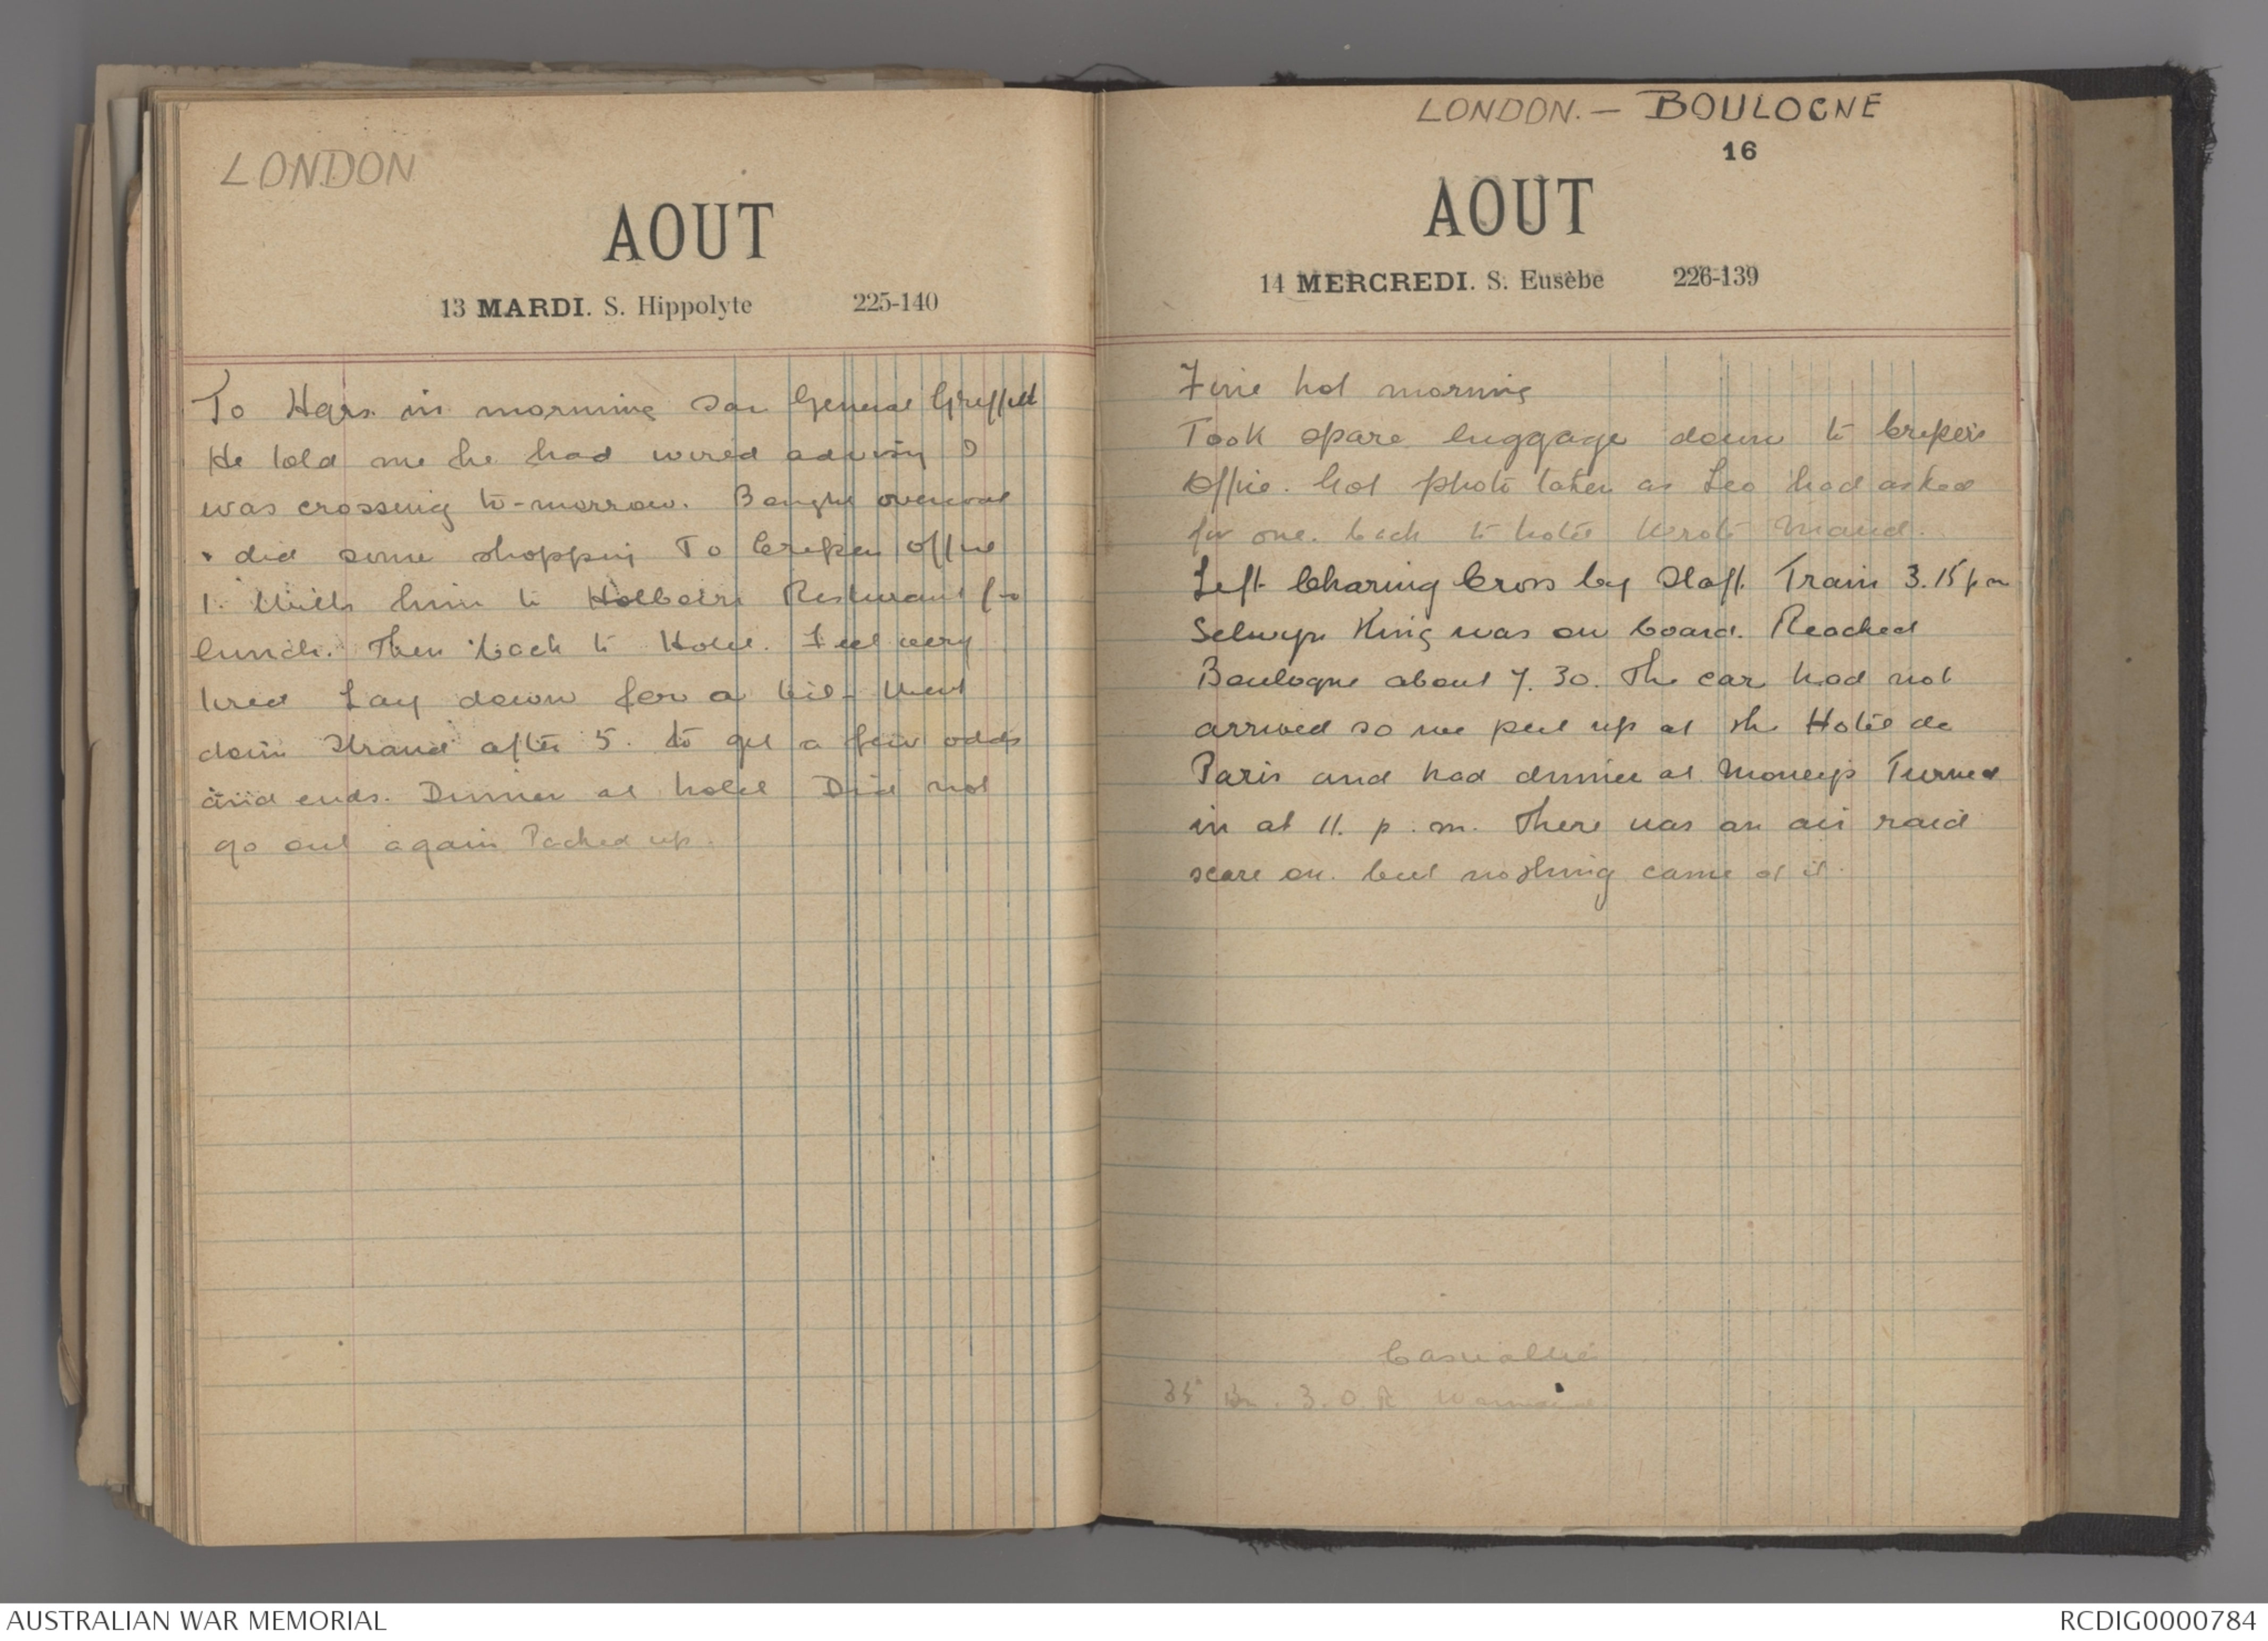 LONDON
AOUT
13 MARDI. S. Hippolyte 225-140
To Hqrs. in morning saw General Griffith
He told me he had wired advising I
was crossing to-morrow. Bought overcoat
& did some shopping To Crespin office
1. With him to Holborn Resturant for
lunch. Then back to Hotel. Feel very
tired Lay down for a bit - Went
down Strand after 5. to get a few odds
and ends. Dinner at hotel Did not
go out again Packed up.
LONDON. - BOULOGNE
16
AOUT
14 MERCREDI. S. Eusèbe 226-139
Fine hot morning
Took spare luggage down to
Office. Got photo taken as Leo had asked
for one. back to hotel Wrote Maud.
Left Charing Cross by Staff Train 3.15 pm
Selwyn King was on board. Reached
Boulogne about 7. 30. The car had not
arrived so we put up at the Hotel de
Paris and had dinner at Mony's Turned
in at 11. p. m. There was an air raid
scare on. but nothing came of it.
Casualties
35th Bn. 3. O. R.
AUSTRALIAN WAR MEMORIAL
RCDIG0000784